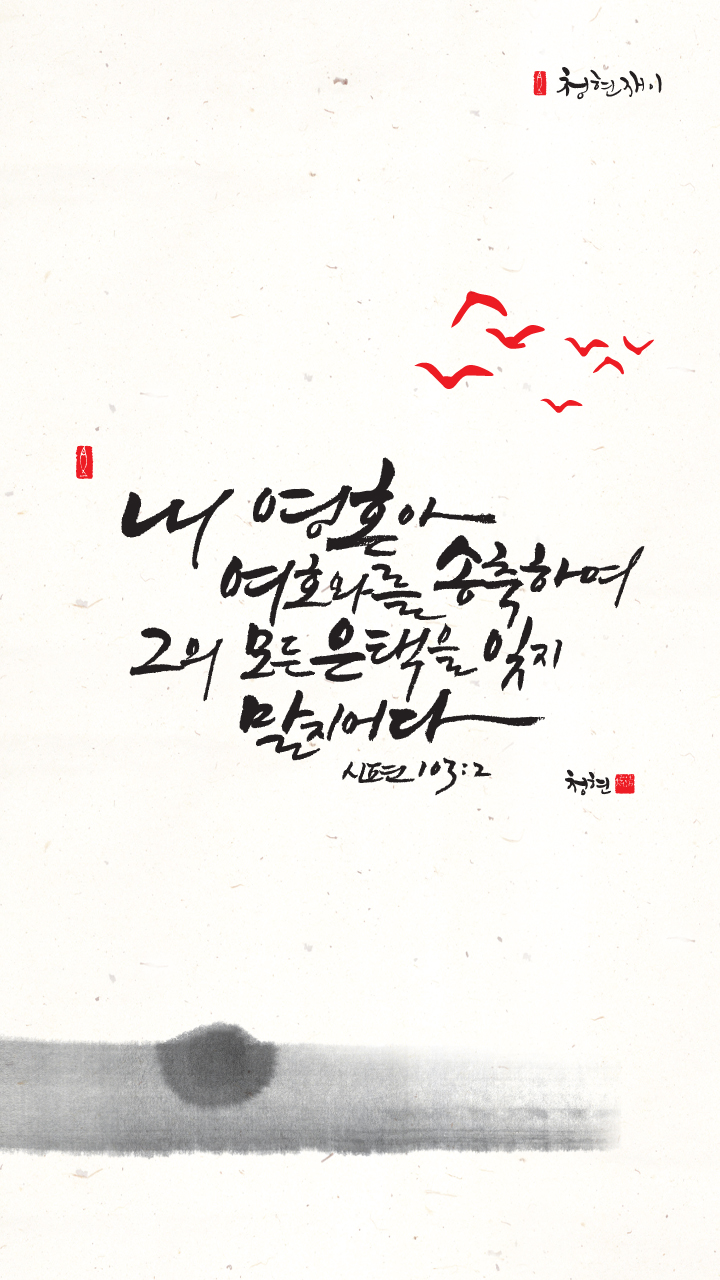 청현재이
내 영혼아
여호와를 송축하며
그의 모든 은택을 잊지
말지어다
시편 103:2
청현